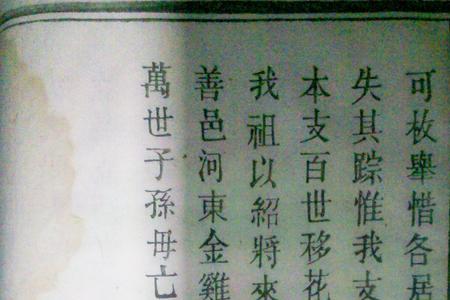 可枚舉惜各居
失其踪惟我支
本支百世移花
我祖以紹將來
善邑河東金雞
萬世子孫毋亡